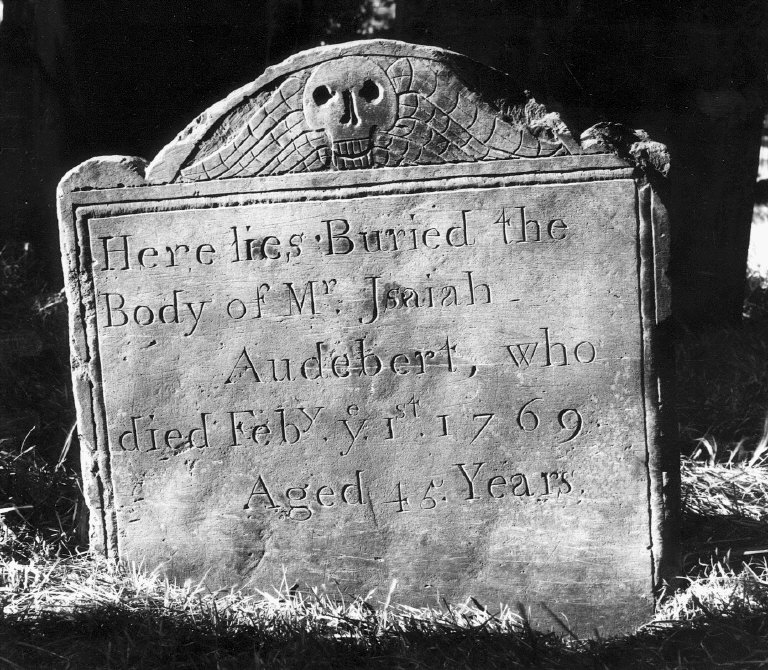 Here lies Buried the
Body of Mr. Isaiah
Audebert, who
died Feby. ye. 1st. 1769.
Aged 45. Years.